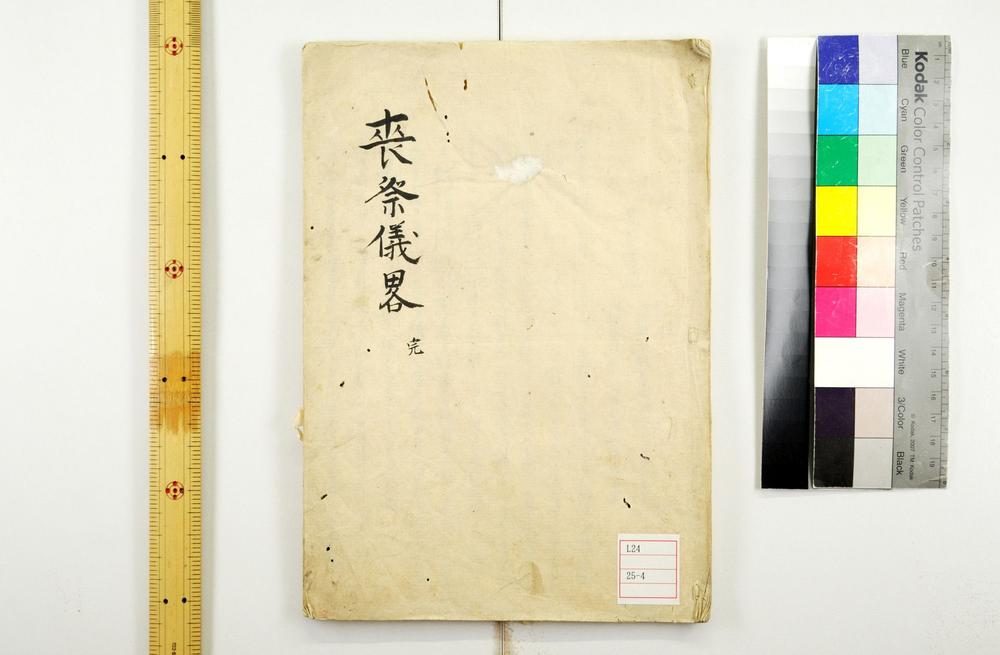 喪祭儀畧
完
L24
25-4
Kodak Color Control Patches
Blue
Cyan
Green
Yellow
Red
Magenta
White
3/Color
Black
© Kodak, 2007 TM: Kodak